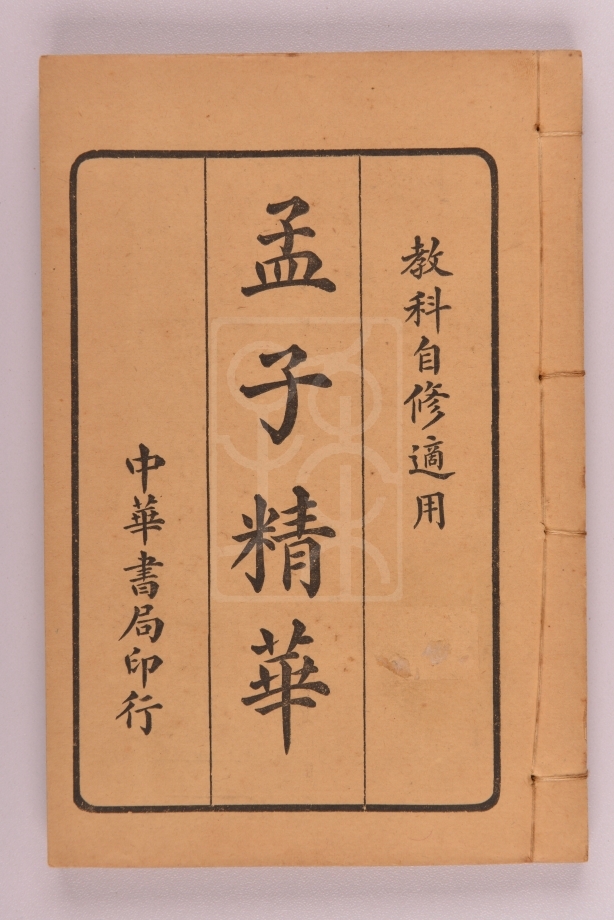 教科自修適用
孟子精華
中華書局印行